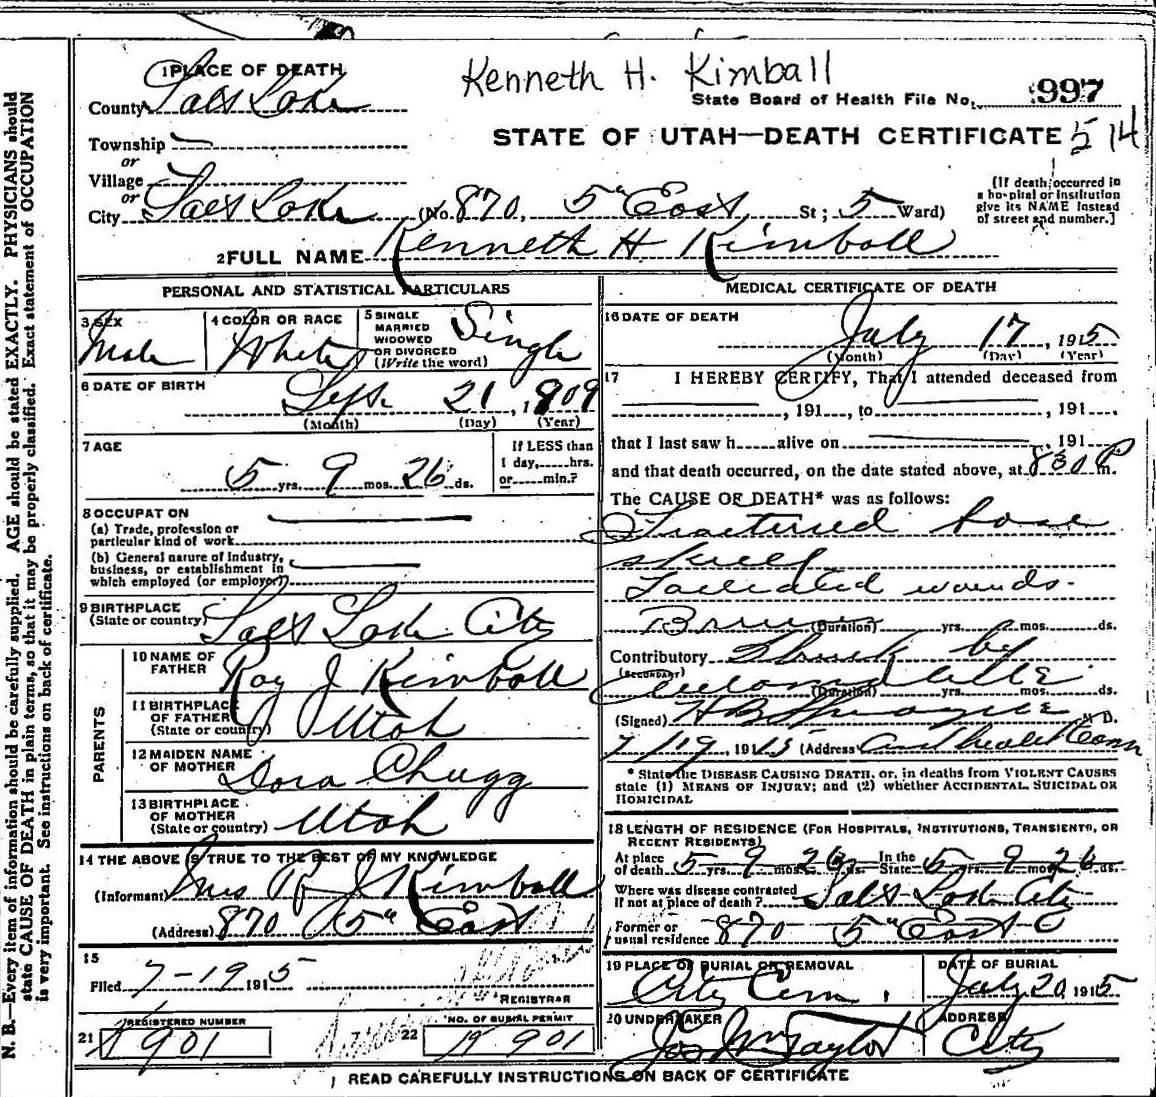 Kenneth H. Kimball
1 PLACE OF DEATH
County Salt Lake
State Board of Health File No. 997
Township
STATE OF UTAH—DEATH CERTIFICATE 514
or
Village
or
City Salt Lake (No. 870, 5" East, St; 5 Ward)
[If death occurred in
a hospital or institution
give its NAME instead
of street and number.]
2 FULL NAME Kenneth H. Kimball
PERSONAL AND STATISTICAL PARTICULARS
3 SEX
Male
4 COLOR OR RACE
White
5 SINGLE
MARRIED
WIDOWED
OR DIVORCED
(Write the word)
Single
6 DATE OF BIRTH
Sept. 21, 1909
(Month) (Day) (Year)
7 AGE
5 yrs. 9 mos. 26 ds.
If LESS than
1 day,.....hrs.
or.....min.?
8 OCCUPATION
(a) Trade, profession or
particular kind of work
(b) General nature of industry,
business, or establishment in
which employed (or employer)
9 BIRTHPLACE
(State or country) Salt Lake City
PARENTS
10 NAME OF
FATHER Roy J Kimball
11 BIRTHPLACE
OF FATHER
(State or country) Utah
12 MAIDEN NAME
OF MOTHER Dora Chugg
13 BIRTHPLACE
OF MOTHER
(State or country) Utah
14 THE ABOVE IS TRUE TO THE BEST OF MY KNOWLEDGE
(Informant) Mrs R J Kimball
(Address) 870 5" East
15
Filed 7-19 1915
REGISTRAR
REGISTERED NUMBER
21 901
NO. OF BURIAL PERMIT
22 901
MEDICAL CERTIFICATE OF DEATH
16 DATE OF DEATH
July 17, 1915
(Month) (Day) (Year)
17 I HEREBY CERTIFY, That I attended deceased from
, 191...., to , 191....,
that I last saw h......alive on , 191
and that death occurred, on the date stated above, at 830 P m.
The CAUSE OF DEATH* was as follows:
Fractured base
skull
Lacerated wounds.
(Duration) yrs. mos. ds.
Contributory Struck by
(SECONDARY)
Automobile
(Duration) yrs. mos. ds.
(Signed) M. D.
7/19, 1915 (Address)
* State the DISEASE CAUSING DEATH, or, in deaths from VIOLENT CAUSES
state (1) MEANS OF INJURY; and (2) whether ACCIDENTAL, SUICIDAL OR
HOMICIDAL
18 LENGTH OF RESIDENCE (FOR HOSPITALS, INSTITUTIONS, TRANSIENTS, OR
RECENT RESIDENTS)
At place
of death 5 yrs. 9 mos. 26 ds. In the
State 5 yrs. 9 mos. 26 ds.
Where was disease contracted
If not at place of death? Salt Lake City
Former or
usual residence 870 5" East
19 PLACE OF BURIAL OR REMOVAL
City Cem.
DATE OF BURIAL
July 20 1915
20 UNDERTAKER
Jos Wm Taylor
ADDRESS
City
READ CAREFULLY INSTRUCTIONS ON BACK OF CERTIFICATE
N. B.—Every item of information should be carefully supplied. AGE should be stated EXACTLY. PHYSICIANS should
state CAUSE OF DEATH in plain terms, so that it may be properly classified. Exact statement of OCCUPATION
is very important. See instructions on back of certificate.